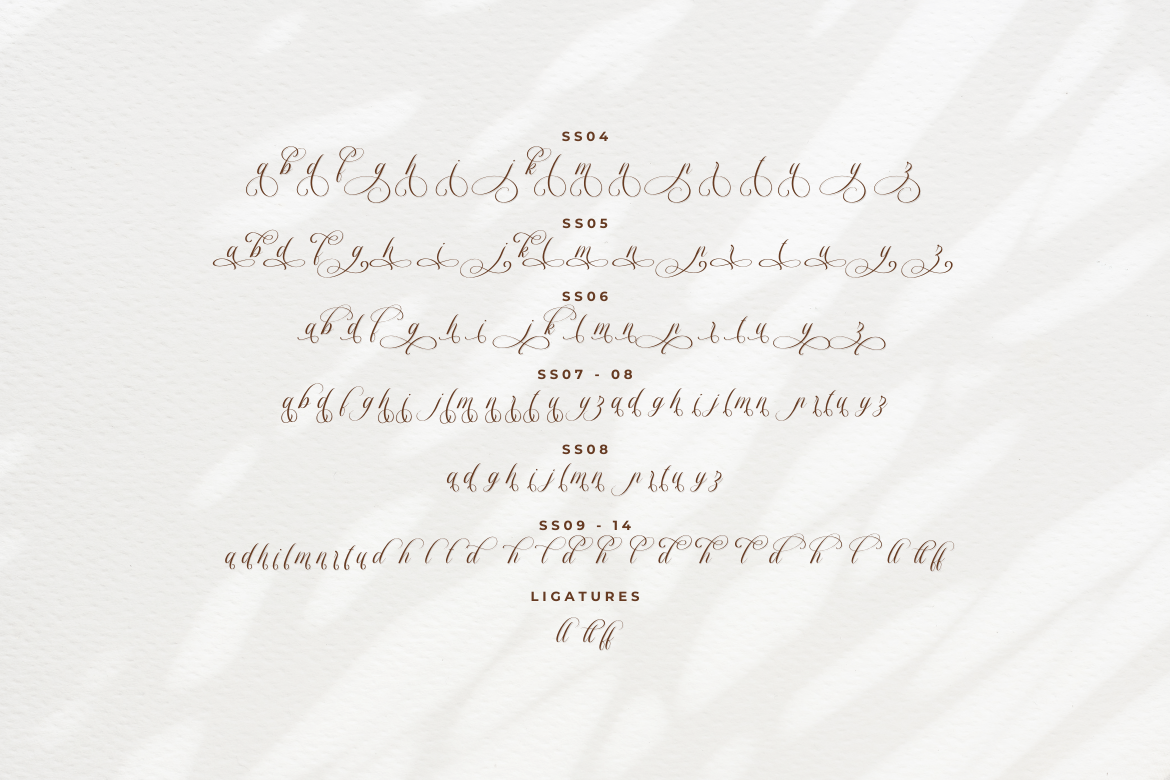 SS04
a b d f g h i j k l m n p r t u y z
SS05
a b d f g h i j k l m n p r t u y z
SS06
a b d f g h i j k l m n p r t u y z
SS07 - 08
a b d f g h i j l m n r t u y z a d g h i j l m n p r t u y z
SS08
a d g h i j l m n p r t u y z
SS09 - 14
LIGATURES
ll tt ff